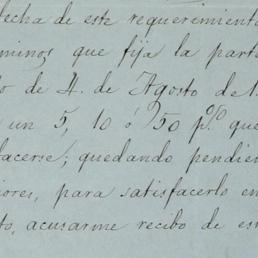 fecha de este requerimiento
minos que fija la part
o de 4. de Agosto de 1
un 5, 10 ó 50 p% que
hacerse; quedando pendien
iores, para satisfacerlo en
to, acusarme recibo de est